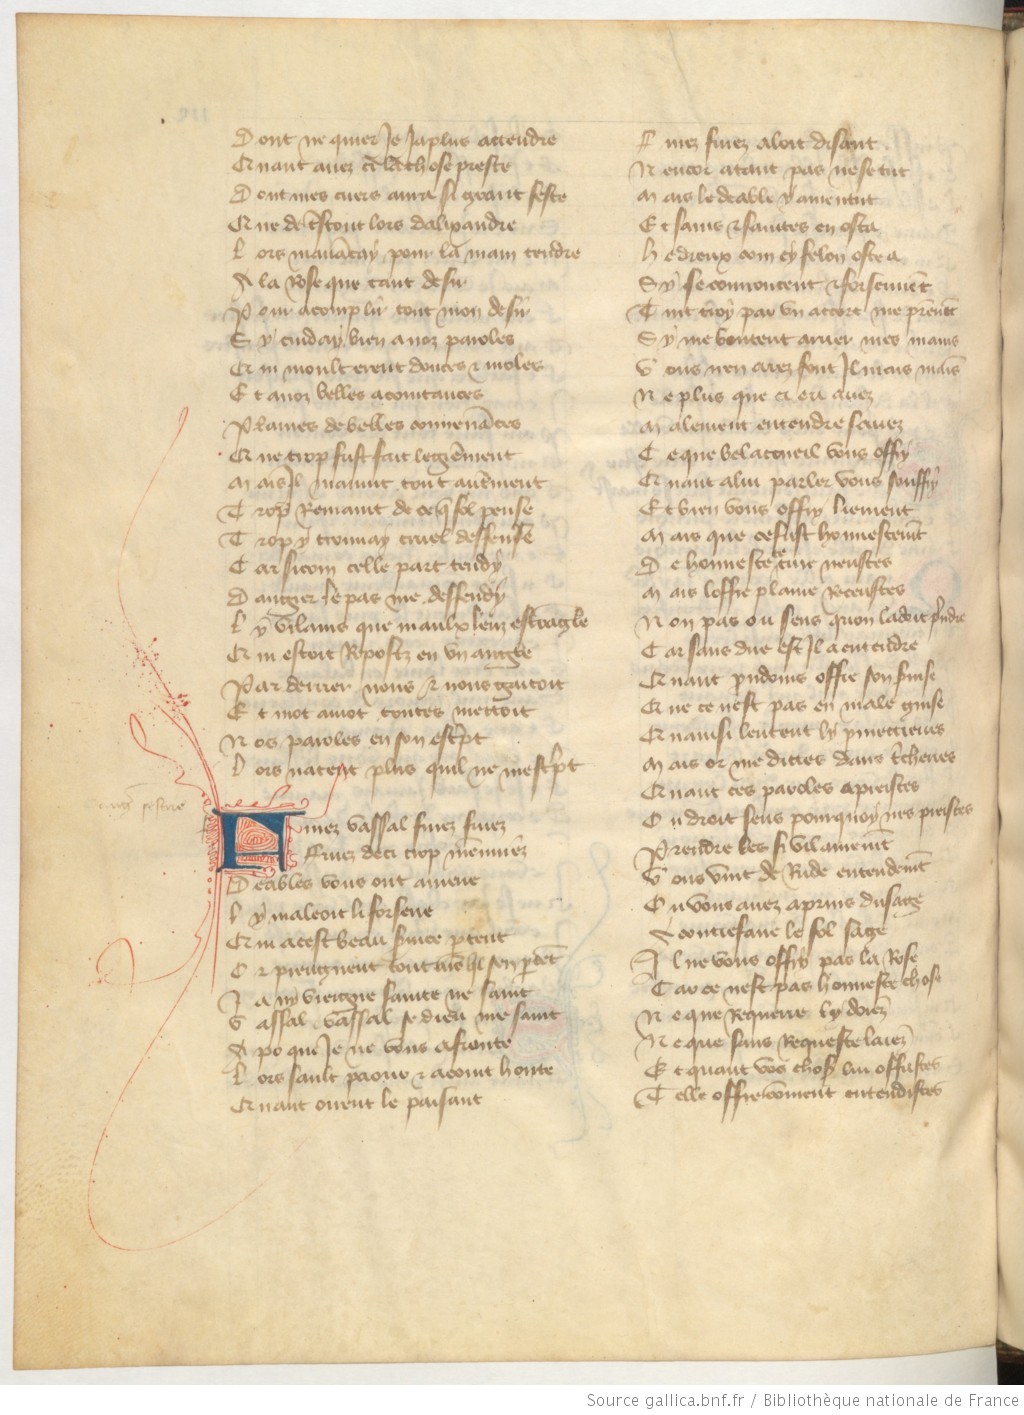 Dont ne quier Je Ja plus attendre
Quant auez celle chose preste
Dont mes cuers aura si grant feste
Que de tscout lors dalixandre
Lors mauacay pour la main tendre
A la Rose que tant desir
Pour acomplir tout mon desir
Sy cuiday bien a noz paroles
Qui moult erent douces & moles
Et a noz belles acointances
Plaines de belles conuenaces
Que trop fust fait legierement
Mais Il mauint tout autrement
Trop Remaint de ce q̄ fol pense
Trop y trouuay cruel deffense
Car si com celle part tendy
Dangier le pas me deffendy
Ly vilains que maulx leuz estrangle
Qui estoit Repostz en vn angle
Par derrier nous & nous gaitoit
Et mot a mot toutes mettoit
Nos paroles en son escript
Lors natent plus quil ne mescript
Fuiez vassal fuiez fuiez
Fuiez deci trop mennuiez
Deables vous ont amene
Ly maleoit li forsene
Qui a cest beau seruice partent
Or preingnent tout ains quil sen partent
Ja ny viengne sainte ne saint
Vassal vassal se dieu me saint
A po que Je ne vous afronte
Lors sault paour & acouit honte
Quant ouent le paisant
Fuiez fuiez aloit disant
Nencor atant pas ne se tut
Mais le deable y amentut
Et sains & saintes en osta
He dieux com cy felon oste a
Sy se couroucent & forsennent
Tuit troy par vn accort me prennent
Sy me boutent arrier mes mains
Vous nen arez font Il mais mains
Ne plus que ci eu auez
Malement entendre sauez
Ce que belacueil vous offry
Quant a lui parler vous souffry
Et bien vous offry liement
Mais que ce fust honnestement
De honneste cure neustes
Mais loffre plaine Receustes
Non pas ou sens quon la doit prendre
Car sans dire est Il a entendre
Quant preudoms offre son seruise
Que ce nest pas en male guise
Quainsi lentent ly prometierres
Mais or me dittes dans tricherres
Quant ces paroles apreistes
Ou droit sens pourquoy nes preistes
Prendre les si vilainement
Vous vint de Rude entendement
Ou vous auez aprins dusage
A contrefaire le fol sage
Il ne vous offry pas la Rose
Car ce nest pas honneste chose
Ne que Requerre ly doiez
Ne que sans Requeste laiez
Et quant voz choses lui offristes
Telle offre coment entendistes
Source gallica.bnf.fr / Bibliothèque nationale de France